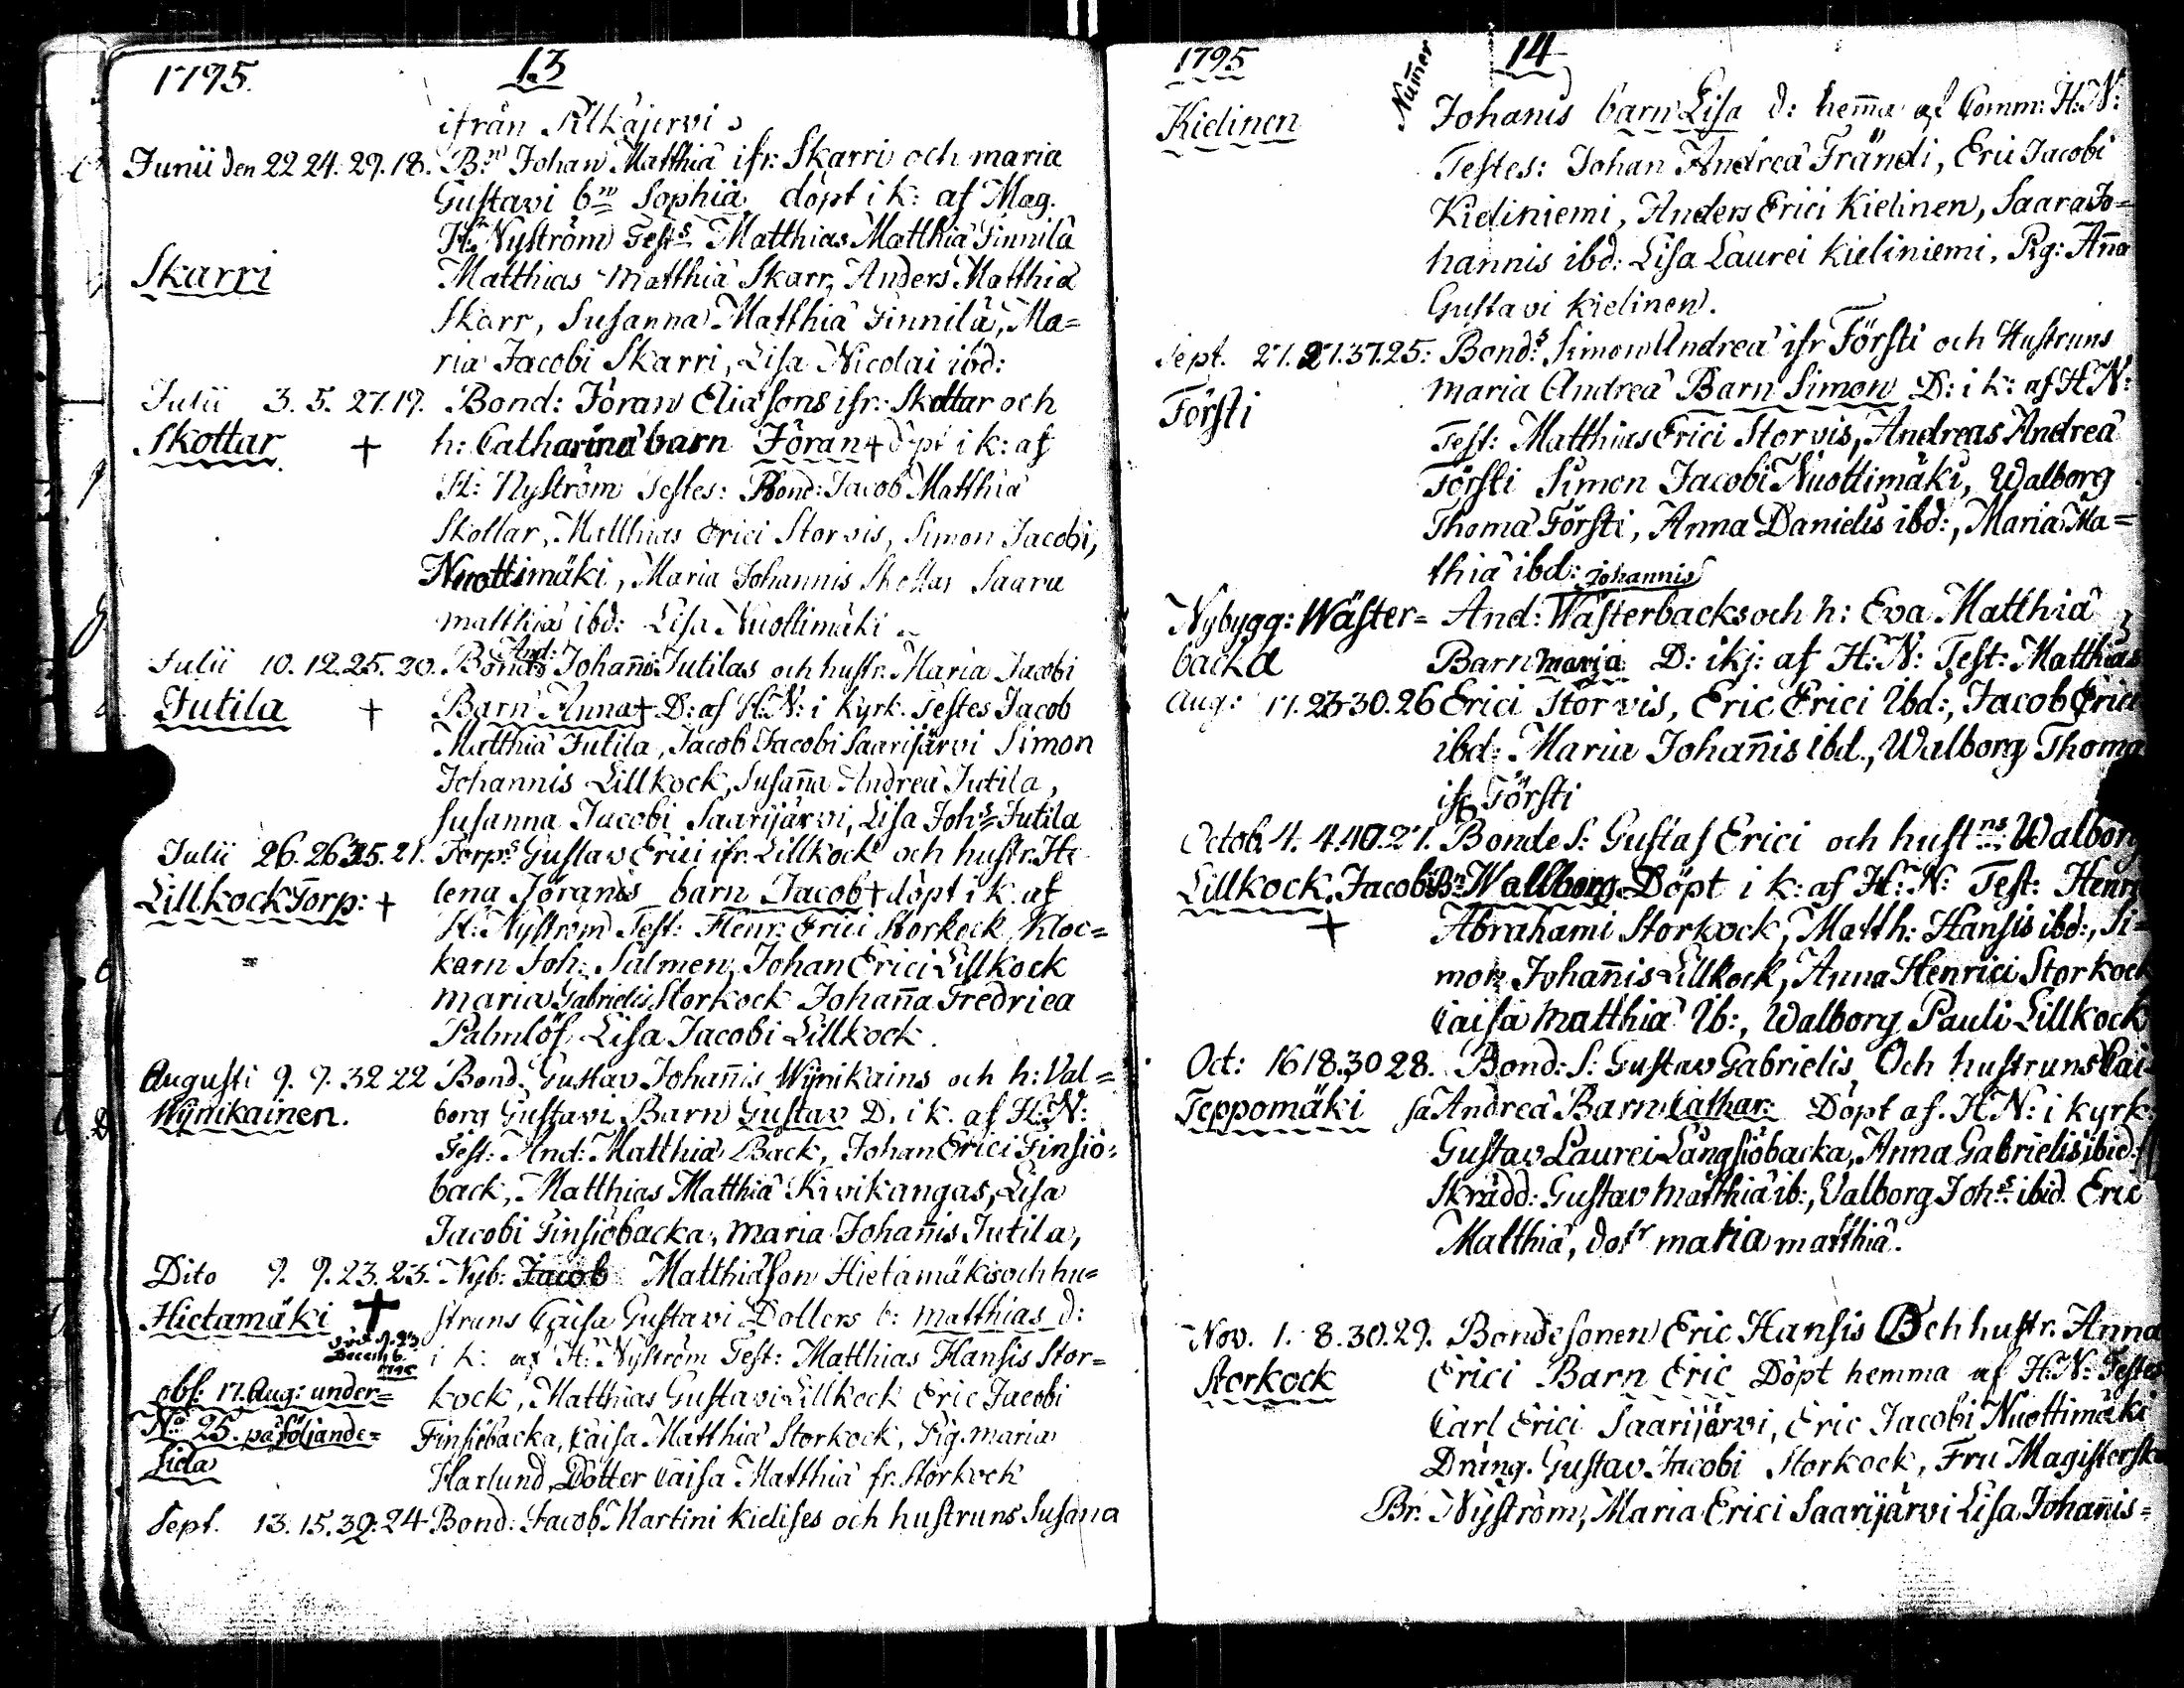 1795. 13
ifrån Pilkäjervi
Junii den 22 24. 29. 18. B:n Johan Matthiä ifr: Skarri och maria
Gustavi b:n Sophiä döpt i k: af Mag.
H: Nyström Test:s Matthias Matthiä Finnilä
Skarri Matthias Matthiä Skarr, Anders Matthiä
Skarr, Susanna Matthiä Finnilä, Ma=
ria Jacobi Skarri, Lisa Nicolai ibd:
Julii 3. 5. 27. 19. Bond: Jöran Eliasons ifr: Skottar och
Skottar + h: Catharina barn Jöran + döpt i k: af
H: Nyström Testes: Bond: Jacob Matthiä
Skottar, Matthias Erici Storvis, Simon Jacobi,
Nuottimäki, Maria Johannis Skottar Saara
matthiä ibd: Lisa Nuottimäki
Julii 10. 12. 25. 20. Bonds And: Johannis Jutilas och hustr. Maria Jacobi
Jutila + Barn Anna + D: af H: N: i Kyrk. Testes Jacob
Matthiä Jutila, Jacob Jacobi Saarijärvi Simon
Johannis Lillkock, Susanna Andreä Jutila,
Susanna Jacobi Saarijärvi, Lisa Joh:s Jutila
Julii 26. 26. 35. 21. Torp:s Gustav Erici ifr. Lillkock och hustr. He
Lillkock Torp: + lena Jöranis barn Jacob + döpt i k. af
H: Nyström Test: Henr: Erici Storkock Kloc=
karn Joh: Salmen, Johan Erici Lillkock
maria Gabrielis Storkock Johanna Fredrica
Palmlöf Lisa Jacobi Lillkock.
Augusti 9. 9. 32 22 Bond. Gustav Johannis Wynikains och h: Val=
Wynikainen. borg Gustavi Barn Gustav D. i k. af H: N:
Test: And: Matthiä Back, Johan Erici Finsiö=
back, Matthias Matthiä Kivikangas, Lisa
Jacobi Finsiöbacka, maria Johannis Jutila,
Dito 9. 9. 23. 23. Nyb: Jacob Matthiäson Hietamäkis och hu=
Hietamäki + struns Caisa Gustavi Dotters b: matthias d:
Decemb. 1795 i k: af H: Nyström Test: Matthias Hansis Stor=
obs: 17. Aug: under= kock, Matthias Gustavi Lillkock Eric Jacobi
N:o 25. påföljande= Finsiöbacka, Caisa Matthiä Storkock, Pig. maria
Sida Harlund, Dotter Caisa Matthiä fr. Storkock
Sept. 13. 15. 39. 24 Bond: Jacob Martini Kielises och hustruns Susana
1795 Numer 14
Kielinen Johanis barn Lisa d: hemma af Comm: H: N:
Testes: Johan Andreä Frändi, Eric Jacobi
Kieliniemi, Anders Erici Kielinen, Saara Jo=
hannis ibd: Lisa Laurei Kieliniemi, Pig: Anna
Gustavi Kielinen.
Sept. 27. 27. 37. 25: Bond:s Simon Andreä ifr Försti och Hustruns
Försti maria Andreä Barn Simon D: i k: af H N:
Test: Matthias Erici Storvis, Andreas Andreä
Försti Simon Jacobi Nuottimäki, Walborg
Thomä Försti, Anna Danielis ibd:, Maria Ma=
thiä ibd:
Nybygg: Wäster= And: Johannis Wästerbacks och h: Eva Matthiä
backa Barn marja D: i kj: af H: N: Test: Matthias
Aug: 17. 23 30. 26 Erici Storvis, Eric Erici Ibd:, Jacob Erici
ibd: Maria Johannis ibd., Walborg Thoma
ifr Försti
Octob. 4. 4. 40. 27. Bonde S: Gustaf Erici och hust:ns Walborg
Lillkock. Jacobi B:n Wallborg Döpt i k: af H: N: Test: Henr
+ Abrahami Storkock, Matth: Hansis ibd:, Si=
mon Johannis Lillkock, Anna Henrici Storkock
Caisa Matthiä Ib:, Walborg Pauli Lillkock
Oct: 16 18. 30 28. Bond: S: Gustav Gabrielis Och hustruns Cai=
Teppomäki sa Andreä Barn Cathar: Döpt af. H. N: i kyrk:
Gustav Laurei Långsiöbacka, Anna Gabrielis ibid.
Skrädd: Gustav Matthiä ib:, Valborg Joh:s ibid. Eric
Matthiä, dotr maria matthiä.
Nov. 1. 8. 30. 29. Bondesonen Eric Hansis Och hustr. Anna
Storkock Erici Barn Eric Döpt hemma af H: N: Testes
Carl Erici Saarijärvi, Eric Jacobi Nuottimäki
Dräng. Gustav Jacobi Storkock, Fru Magisterska
Br. Nyström, Maria Erici Saarijärvi Lisa Johannis=